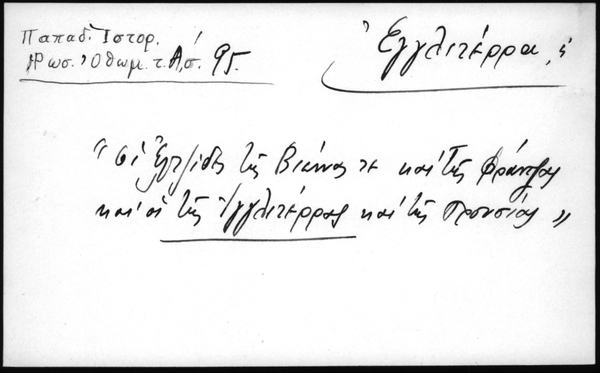 Παπαδ. Ἱστορ.
Ῥωσ. Ὀθωμ. τ. Α, σ. 95.
Ἐγγλιτέρρα, ἡ
"οἱ Ἐλπίδες τῆς Βιέννας τε καὶ τῆς Φράντζας
καὶ οἱ τῆς Ἰγγλιτέρρας καὶ τῆς Προυσίας"